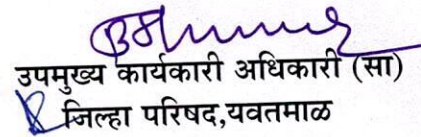 उपमुख्य कार्यकारी अधिकारी (सा)
जिल्हा परिषद,यवतमाळ